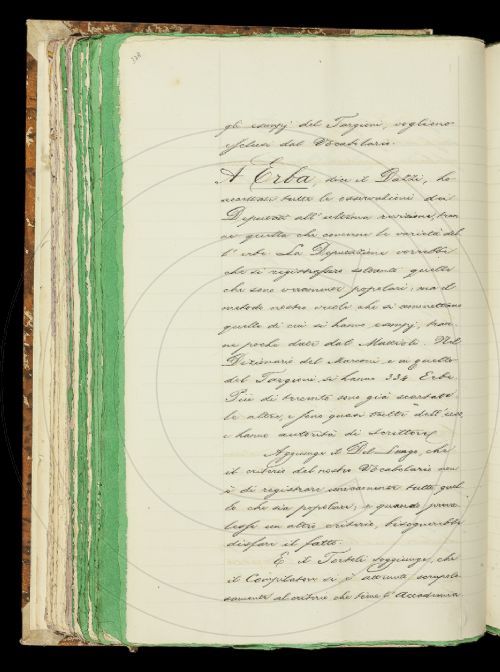 338
gli esempj del Targioni, vogliono
esclusi dal Vocabolario.
A Erba, dice il Dazzi, ho
accettate tutte le osservazioni dei
Deputati all'ultima revisione, tran
ne quella che concerne le varietà del
l'erbe. La Deputazione vorrebbe
che si registrassero soltanto quelle
che sono veramente popolari; ma il
metodo nostro vuole che si ammettano
quelle di cui si hanno esempj, tran
ne poche date dal Mattioli. Nel
Dizionario del Marconi, e in quello
del Targioni, si hanno 334 Erbe.
Più di trecento sono già scartate
le altre, e sono quasi tutte dell'uso,
e hanno autorità di Scrittore.
Aggiunge il Del-Lungo, che
il criterio del nostro Vocabolario non
è di registrare unicamente tutto quel
lo che sia popolare; e quando preva
lesse un altro criterio, bisognerebbe
disfare il fatto.
E il Tortoli soggiunge, che
il Compilatore si è attenuto scrupolo
samente al criterio che tiene l'Accademia